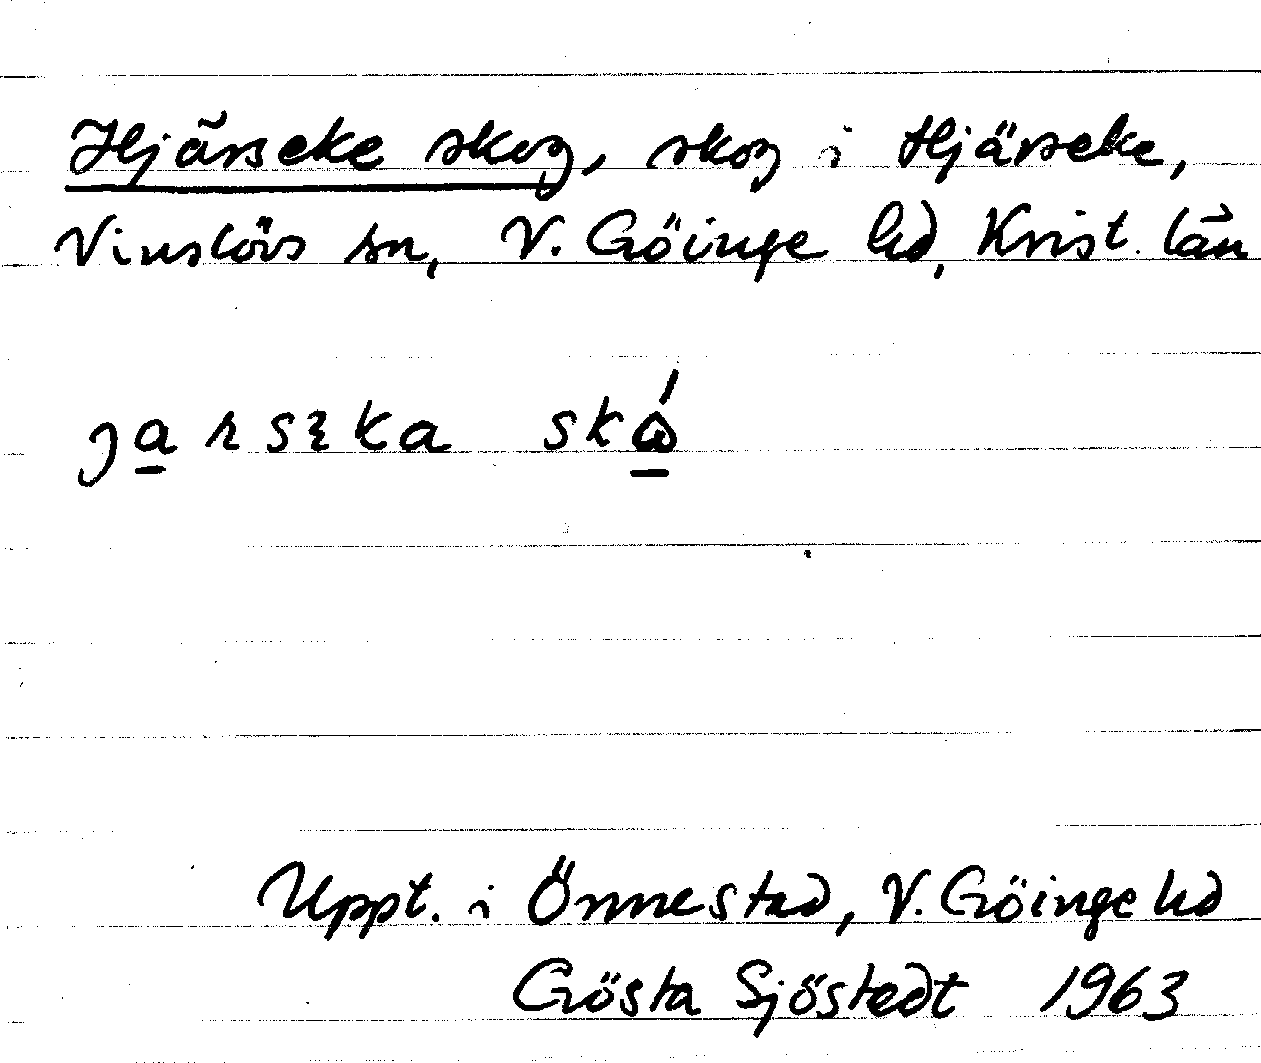 Hjärseke skog, skog i Hjärseke,
Vinslövs sn, V. Göinge hd, Krist. län
skɷ́
Uppt. i Önnestad, V. Göinge hd
Gösta Sjöstedt 1963